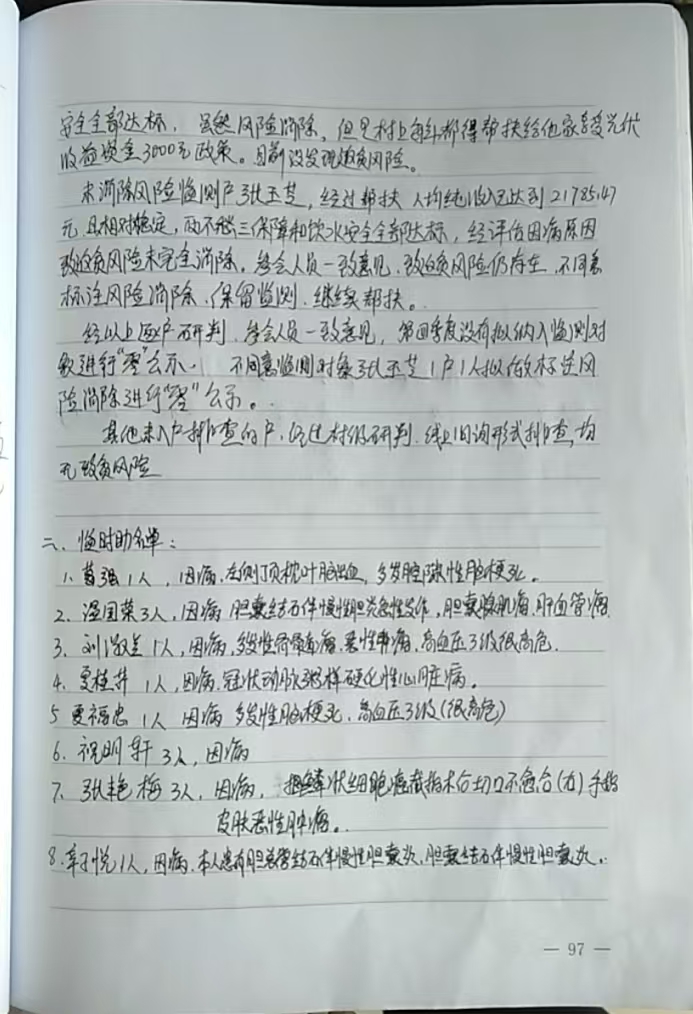 安全全部达标，虽然风险消除，但是村上每年都得帮扶给他家享受光伏
收益资金3000元政策。目前没发现返贫风险。
未消除风险监测户张玉芝，经过帮扶 人均纯收入已达到21785.47
元 且相对稳定，两不愁三保障和饮水安全全部达标，经评估因病原因
致返贫风险未完全消除。参会人员一致意见，致返贫风险仍存在，不同意
标注风险消除、保留监测、继续帮扶。
经以上逐户研判，参会人员一致意见，第四季度没有拟纳入监测对
象进行“零”公示。 不同意监测对象张玉芝1户1人拟做标注风
险消除进行“零”公示。
其他未入户排查的户，经过村级研判，线上问询形式排查，均
无致贫风险
二、临时助名单：
1、葛强1人，因病，左侧顶枕叶脑出血，多发腔隙性脑梗死。
2、温国荣3人，因病 胆囊结石伴慢性胆炎急性发作，胆囊腺肌病，肝血管瘤
3、刘淑兰1人，因病，多发性骨髓瘤，恶性肿瘤，高血压3级很高危.
4、夏桂井 1人，因病，冠状动脉粥样硬化性心脏病。
5 夏福忠 1人 因病 多发性脑梗死、高血压3级(很高危)
6、祝明轩 3人，因病
7、张艳梅3人，因病， 鳞状细胞癌截指术后切口不愈合(右)手指
皮肤恶性肿瘤。
8、辛悦1人，因病，本人患有胆总管结石伴慢性胆囊炎，胆囊结石伴慢性胆囊炎。
— 97 —